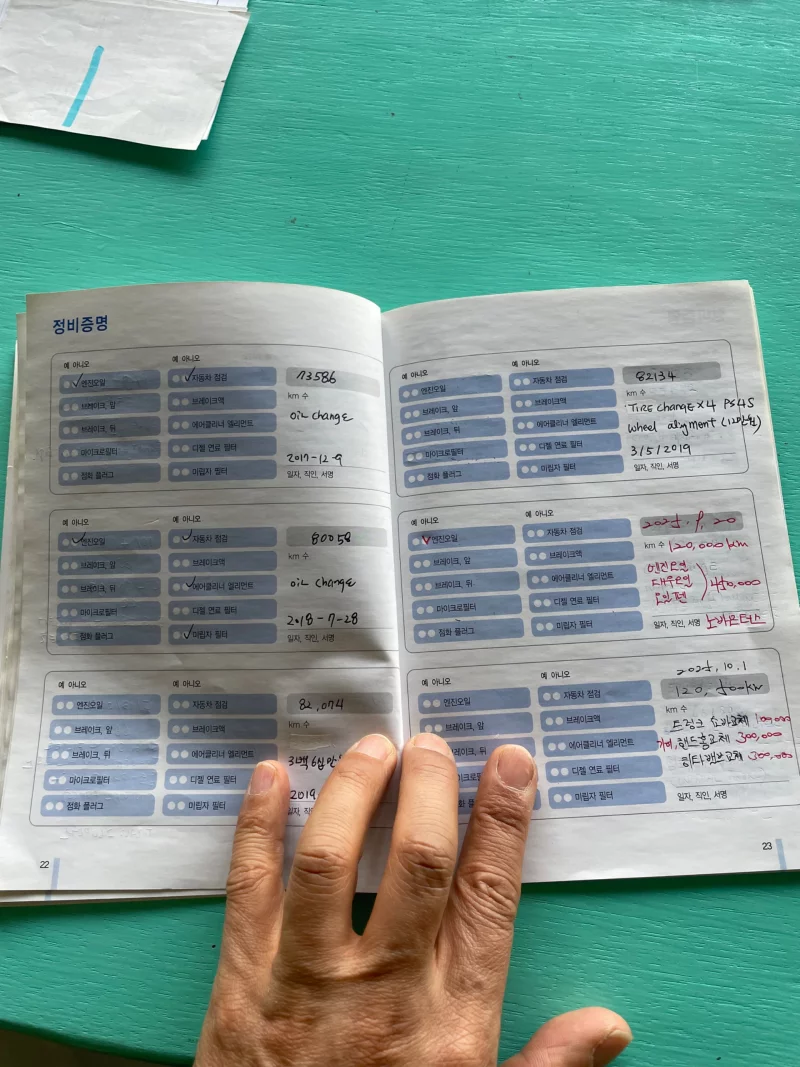 정비증명
예 아니오 예 아니오
엔진오일 자동차 점검 73586
브레이크, 앞 브레이크액 km 수
브레이크, 뒤 에어클리너 엘리먼트 oil change
마이크로필터 디젤 연료 필터 2017-12-9
점화 플러그 미립자 필터 일자, 직인, 서명
예 아니오 예 아니오
엔진오일 자동차 점검 80058
브레이크, 앞 브레이크액 km 수
브레이크, 뒤 에어클리너 엘리먼트 oil change
마이크로필터 디젤 연료 필터 2018-7-28
점화 플러그 미립자 필터 일자, 직인, 서명
예 아니오 예 아니오
엔진오일 자동차 점검 82,074
브레이크, 앞 브레이크액 km 수
브레이크, 뒤 에어클리너 엘리먼트 3백6십만
마이크로필터 디젤 연료 필터 2019
점화 플러그 미립자 필터 일자, 직
22
예 아니오 예 아니오
엔진오일 자동차 점검 82134
브레이크, 앞 브레이크액 km 수
TIRE change x4 PS4S
브레이크, 뒤 에어클리너 엘리먼트 wheel aligment
마이크로필터 디젤 연료 필터 3/5/2019
점화 플러그 미립자 필터 일자, 직인, 서명
예 아니오 예 아니오
엔진오일 자동차 점검
브레이크, 앞 브레이크액 km 수 120,000km
엔진오일
브레이크, 뒤 에어클리너 엘리먼트
마이크로필터 디젤 연료 필터 오일팬
점화 플러그 미립자 필터 일자, 직인, 서명
예 아니오 예 아니오
엔진오일 자동차 점검
브레이크, 앞 브레이크액 km 수
트렁크 쇼바교체 100,000
레이크, 뒤 에어클리너 엘리먼트 300,000
디젤 연료 필터 300,000
미립자 필터 일자, 직인, 서명
23